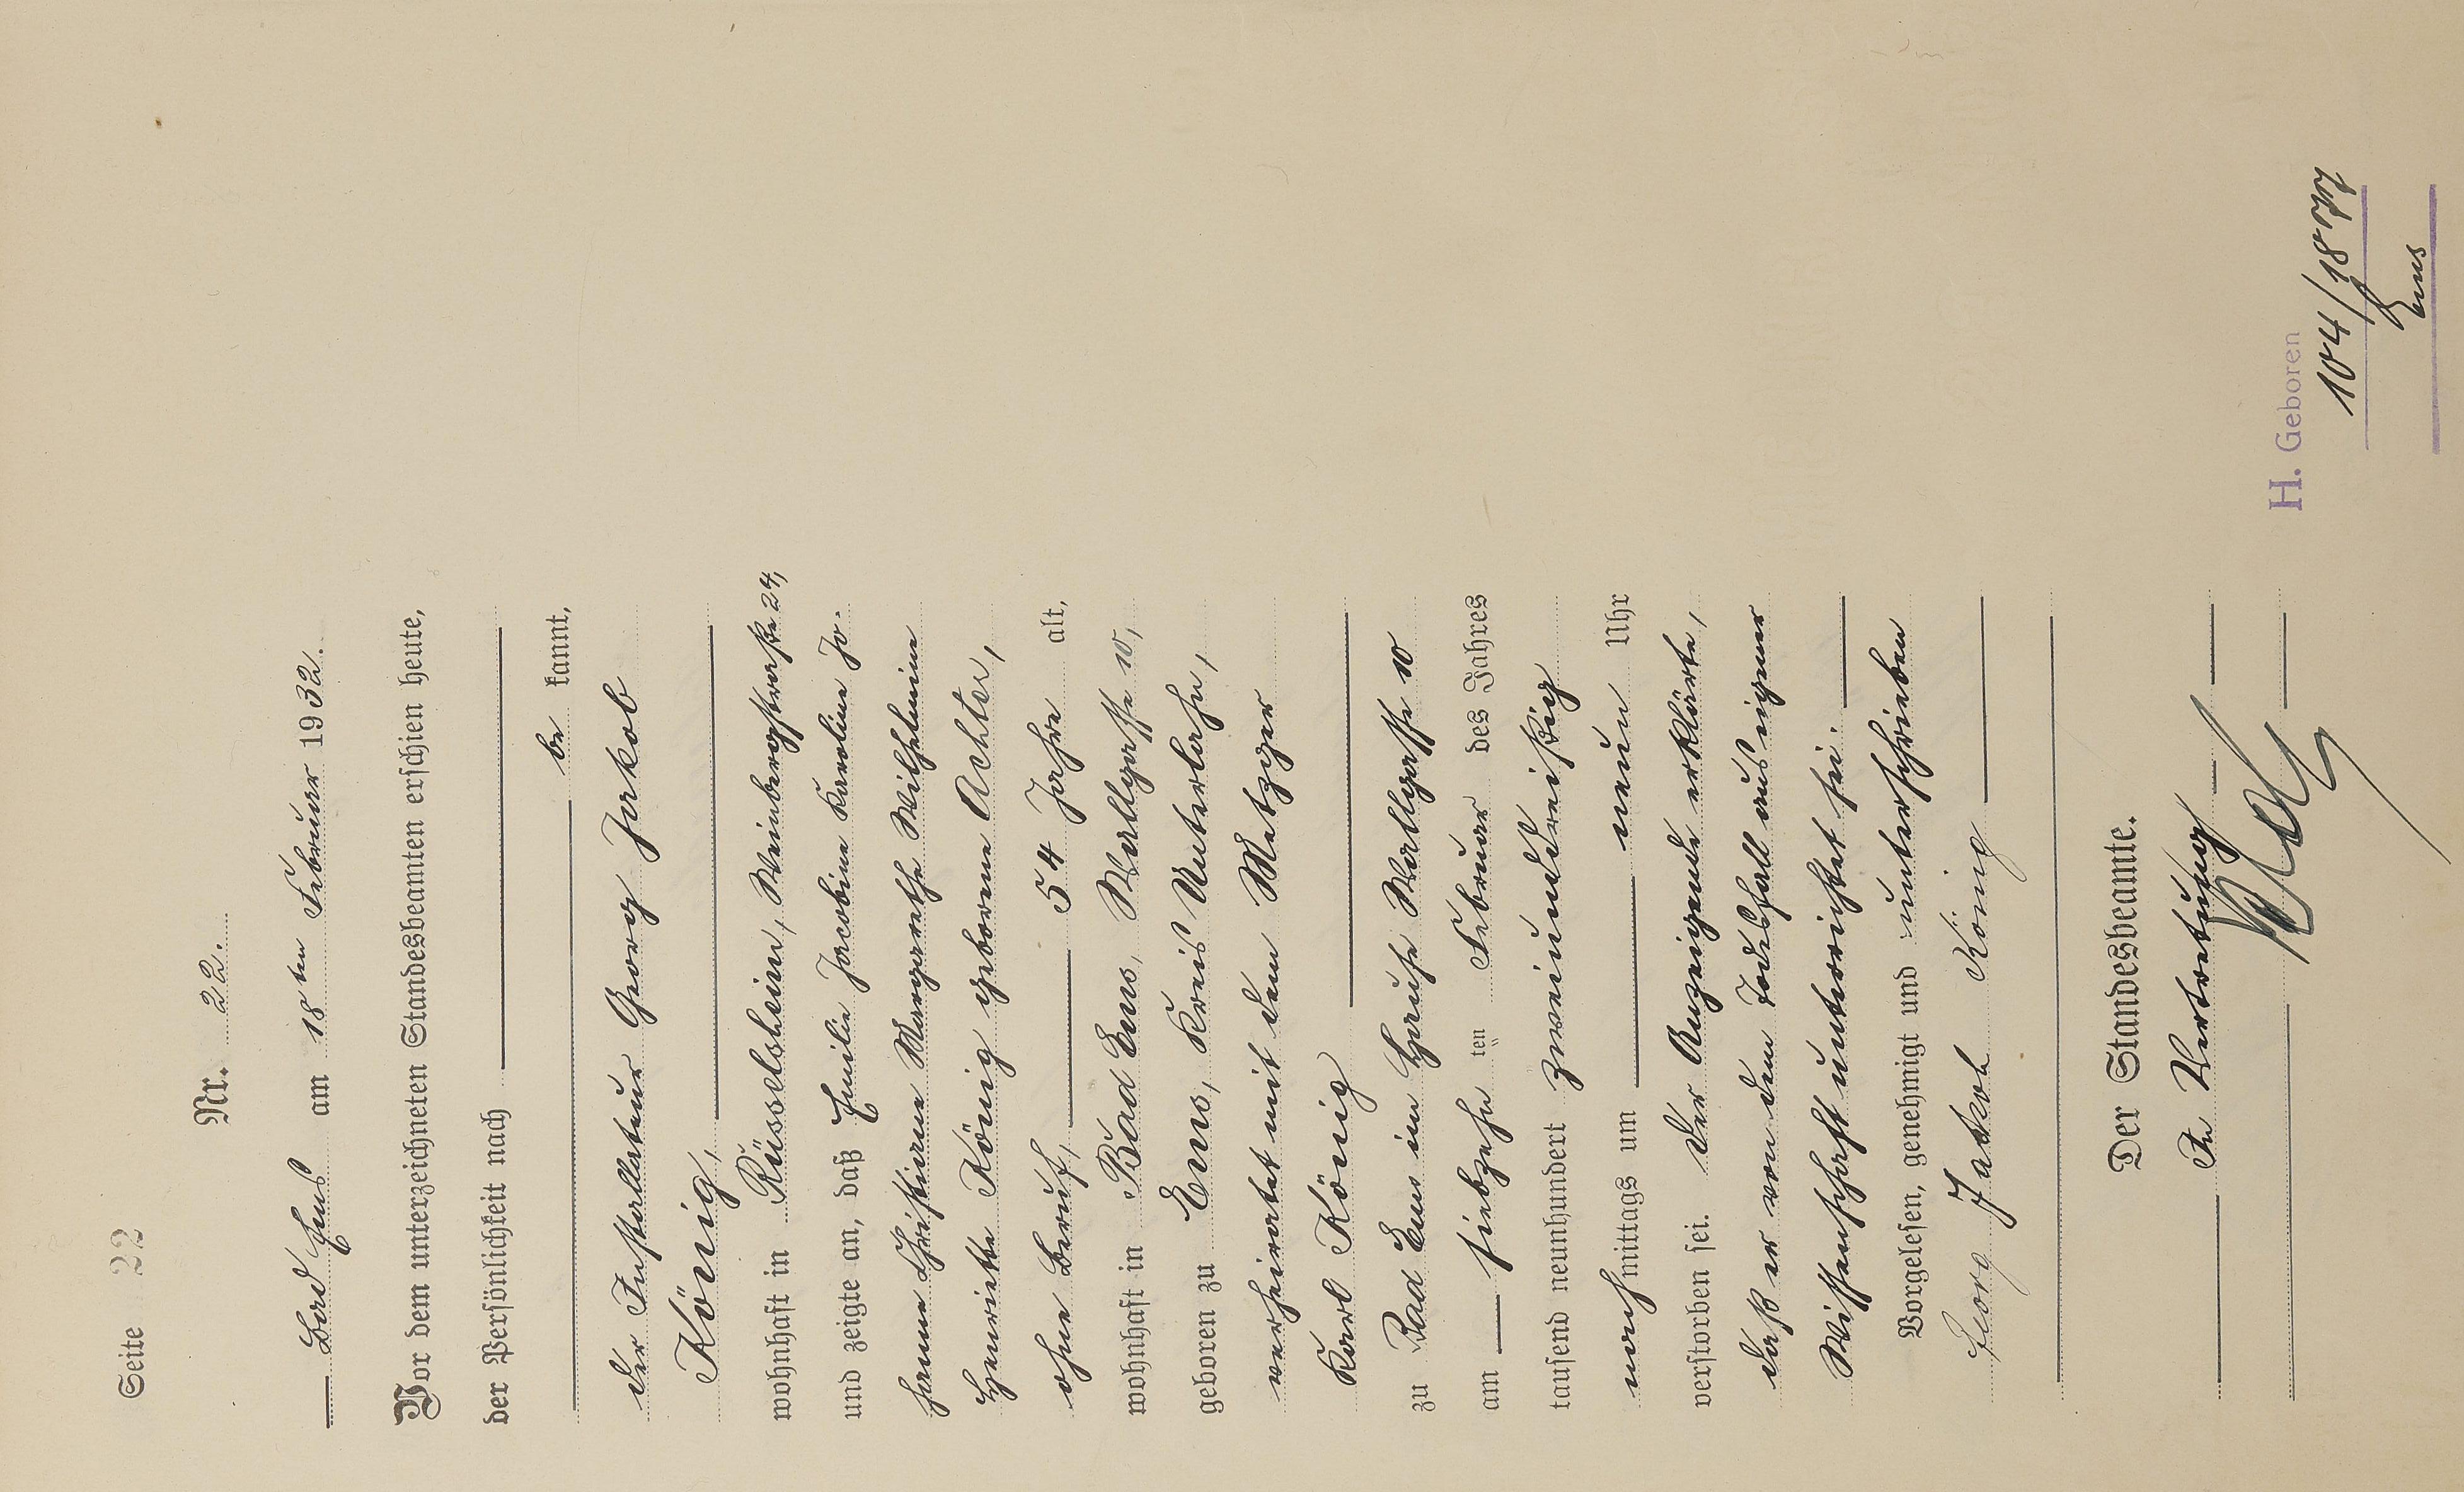 Seite 22
Nr. 22.
Bad Ems am 18ten Februar 1932.
Vor dem unterzeichneten Standesbeamten erschien heute,
der Persönlichkeit nach
be kannt,
der Installateur Georg Jakob
König,
wohnhaft in Rüsselsheim, Weinbergstraße 24,
und zeigte an, daß Emilie Jacobine Karoline Jo-
hanna Christiane Margarethe Wilhelmine
Henriette König geborene Achter,
ohne Beruf, 54 Jahre alt,
wohnhaft in Bad Ems, Wallgasse 10,
geboren zu Ems, Kreis Unterlahn,
verheiratet mit dem Metzger
Karl König
zu Bad Ems im Hause Wallgasse 10
am siebzehn ten Februar des Jahres
tausend neunhundert zweiunddreißig
nach mittags um neun Uhr
verstorben sei. Der Anzeigende erklärte,
daß er von dem Todesfall aus eigener
Wissenschaft unterrichtet sei.
Vorgelesen, genehmigt und unterschrieben
Georg Jakob König
Der Standesbeamte.
In Vertretung
H. Geboren
104/1877
Ems